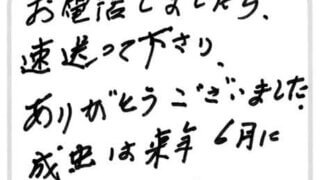 お電話しましたら、
速送って下さり、
ありがとうございました
成虫は来年 6月に